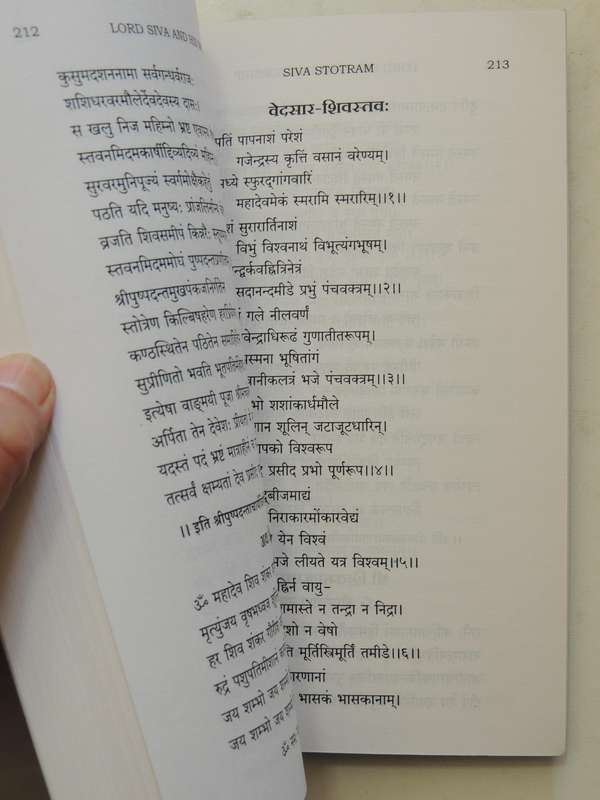 212
LORD SIVA AND
कुसुमदशननामा सर्वगन्धर्वराजः
शशिधरवरमौलेर्देवदेवस्य दासः।
स खलु निज महिम्नो भ्रष्ट
स्तवनमिदमकार्षीद्दिव्यदिव्यं
सुरवरमुनिपूज्यं स्वर्गमोक्षैकहेतुं
पठति यदि मनुष्यः प्रांजलिर्नान्य
व्रजति शिवसमीपं किन्नरैः
स्तवनमिदममोघं पुष्पदन्तप्रणीतम्
श्रीपुष्पदन्तमुखपंकजनिर्गतेन
स्तोत्रेण किल्बिषहरेण हरप्रियेण
कण्ठस्थितेन पठितेन समाहितेन
सुप्रीणितो भवति भूतपतिर्महेशः
इत्येषा वाङ्मयी पूजा
अर्पिता तेन देवेशः प्रीयतां
यदक्षं पदं भ्रष्टं मात्राहीनं
तत्सर्वं क्षम्यतां देव प्रसीद
।। इति श्रीपुष्पदन्ताचार्य
ॐ महादेव शिव शंकर
मृत्युंजय वृषभध्वज
हर शिव शंकर गौरीशं
रुद्रं पशुपतिमीशानं
जय शम्भो जय शम्भो
जय शम्भो जय शम्भो
SIVA STOTRAM
213
वेदसार-शिवस्तवः
पतिं पापनाशं परेशं
गजेन्द्रस्य कृत्तिं वसानं वरेण्यम्।
मध्ये स्फुरद्गांगवारिं
महादेवमेकं स्मरामि स्मरारिम्।।१।।
शं सुरारार्तिनाशं
विभुं विश्वनाथं विभूत्यंगभूषम्।
न्द्वर्कवह्नित्रिनेत्रं
सदानन्दमीडे प्रभुं पंचवक्त्रम्।।२।।
शं गले नीलवर्णं
वेन्द्राधिरूढं गुणातीतरूपम्।
स्मना भूषितांगं
ानीकलत्रं भजे पंचवक्त्रम्।।३।।
भो शशांकार्धमौले
शान शूलिन् जटाजूटधारिन्।
ापको विश्वरूप
प्रसीद प्रभो पूर्णरूप।।४।।
बीजमाद्यं
निराकारमोंकारवेद्यं
येन विश्वं
भजे लीयते यत्र विश्वम्।।५।।
ह्निर्न वायु-
गमास्ते न तन्द्रा न निद्रा।
शो न वेषो
ति मूर्तिस्त्रिमूर्तिं तमीडे।।६।।
ारणानां
भासकं भासकानाम्।